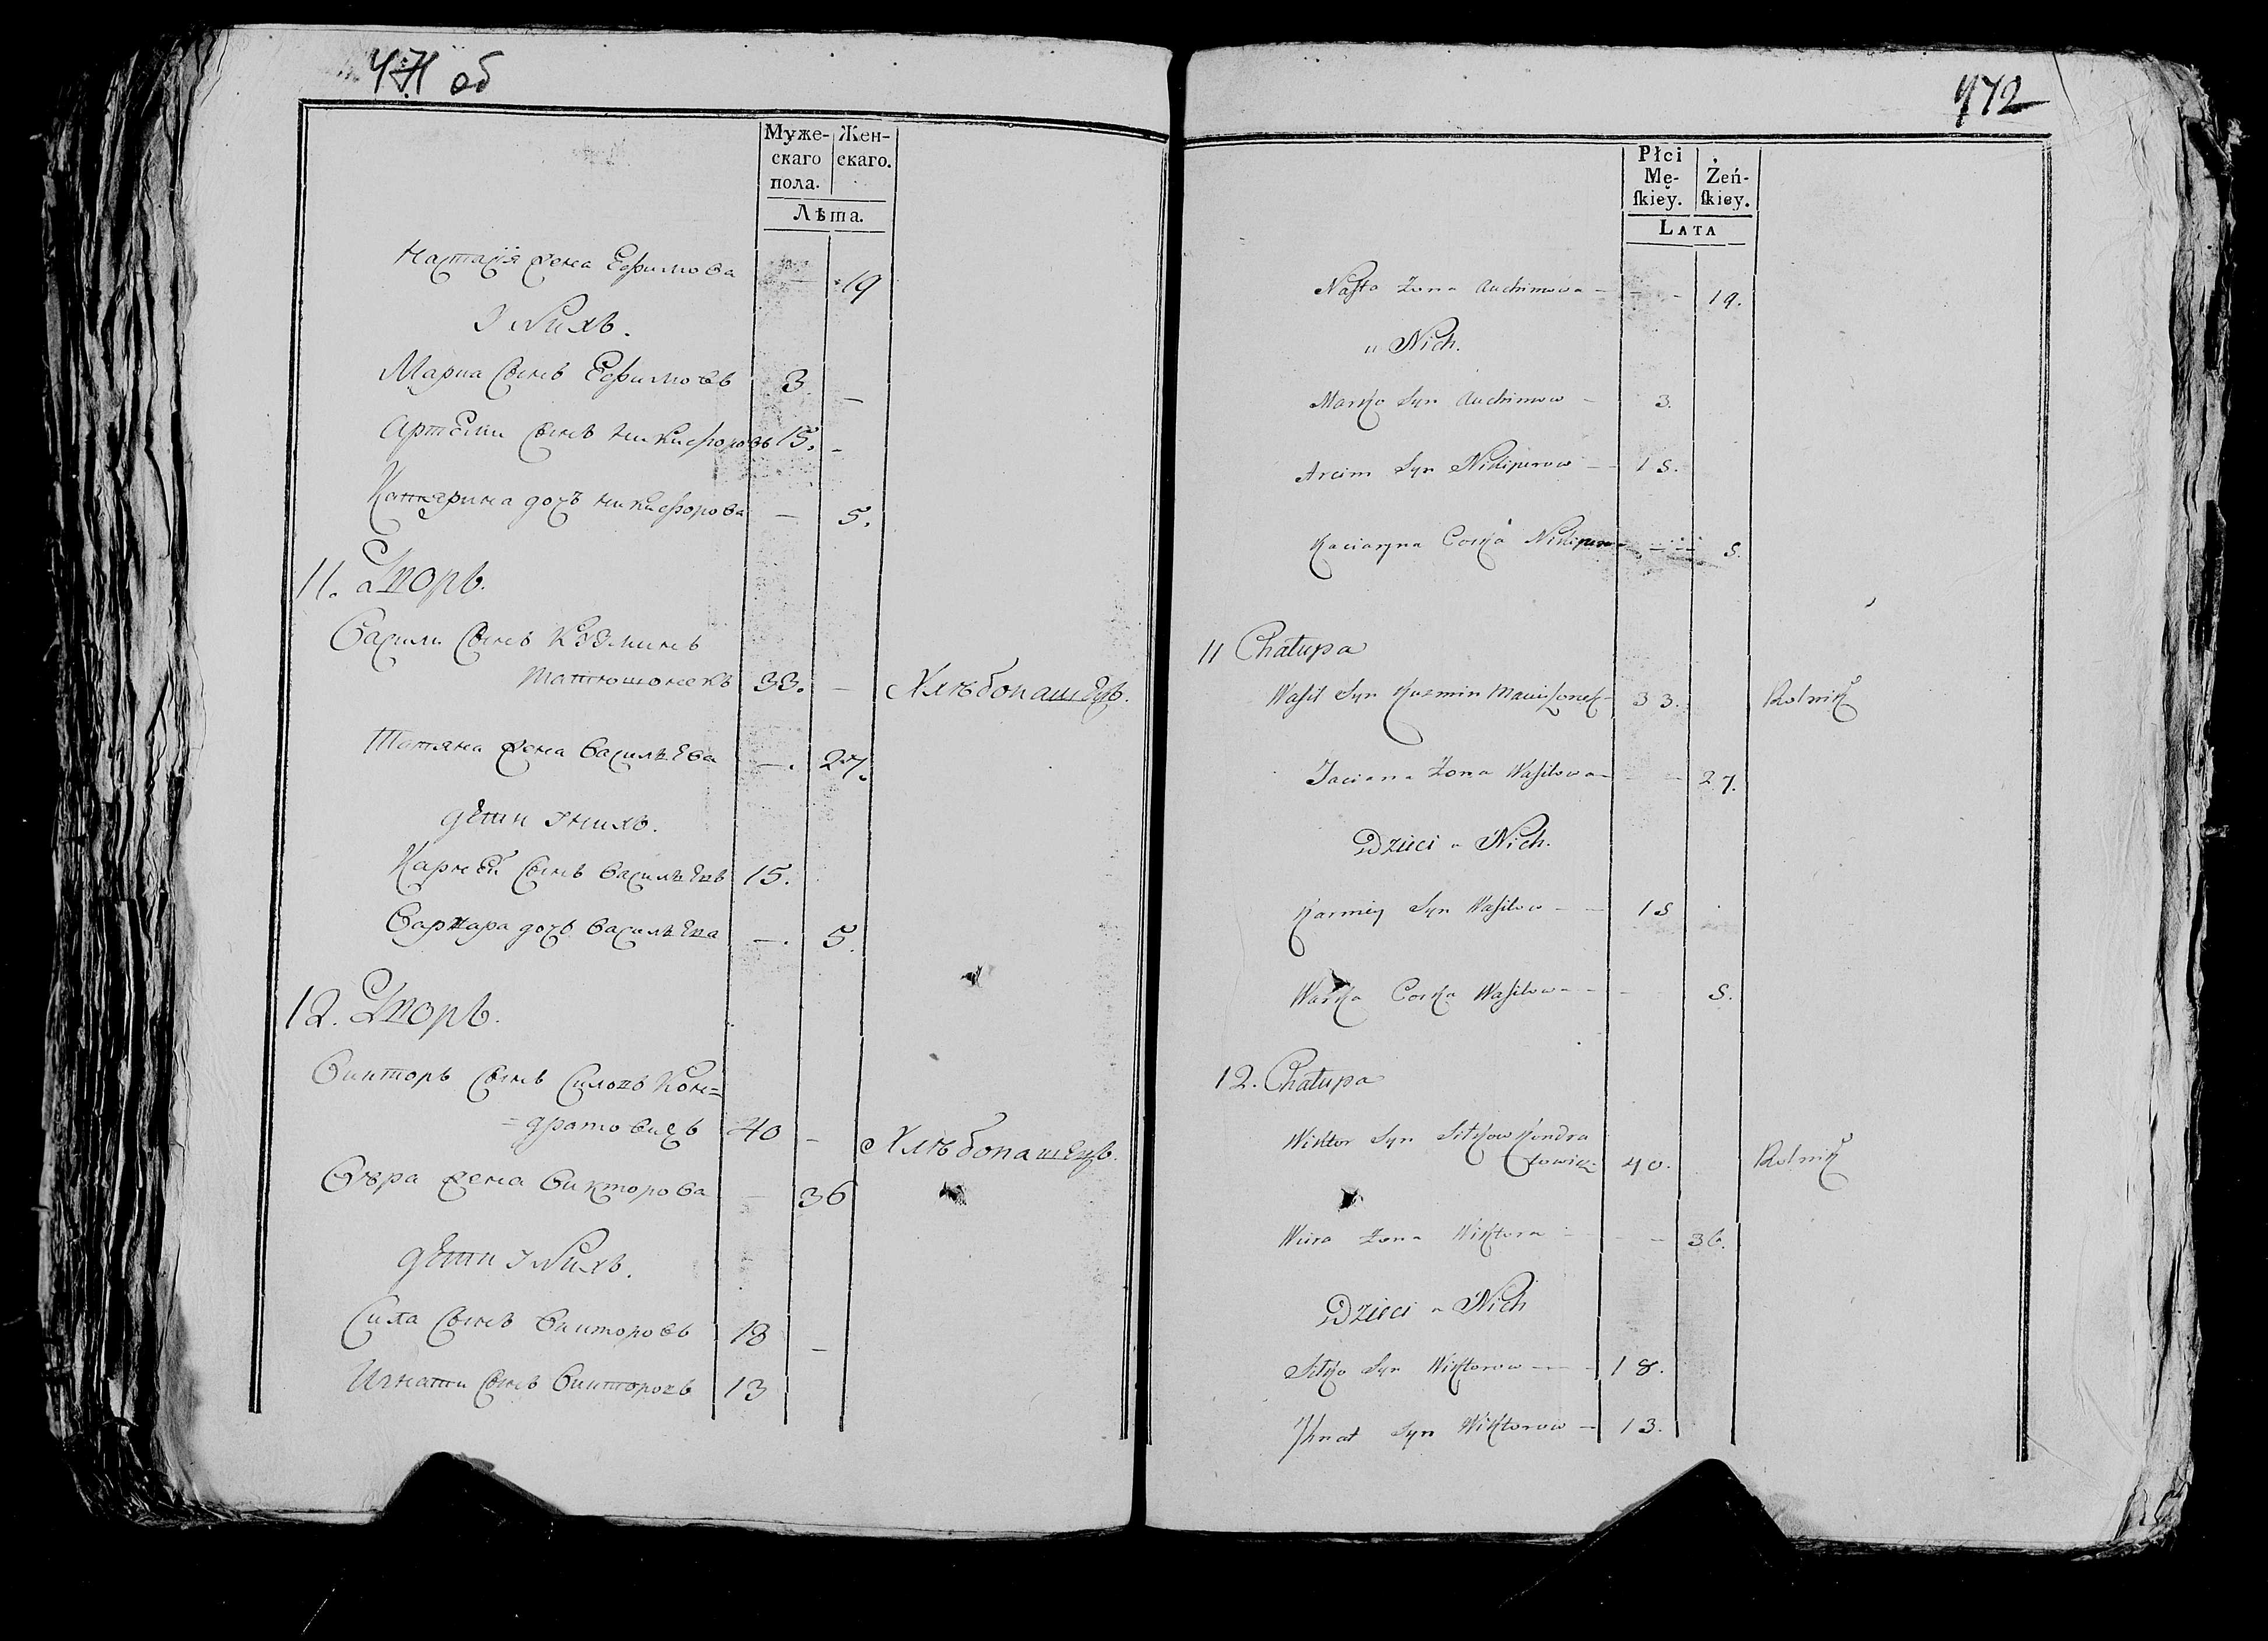 471 об
Муже-
скаго
пола.
Жен-
скаго.
Лѣта.
Настасія жена Ефимова — 19
У Нихъ.
Марка сынъ Ефимовъ 3 —
Артеми сынъ Никифоровъ 15. —
Катерина дочь Никифорова — 5.
11. Дворъ.
Васили сынъ Кузминъ
Матюшонекъ 33. — Хлѣбопашецъ.
Татяна жена Васильева —. 27.
дети У нихъ.
Карней сынъ Васильевъ 15.
Варвара дочь Васильева —. 5.
12. Дворъ.
Викторъ сынъ Силовъ Кон=
=дратовичъ 40 — Хлѣбопашецъ.
Вѣра жена Викторова — 36
дети У Нихъ.
Сила сынъ Викторовъ 18 —
Игнати сынъ Викторовъ 13
472
Płci
Mę-
skiey.
Żeń-
skiey.
LATA
Nasta Żona Auchimowa — — 19.
u Nich.
Marko Syn Auchimow — 3.
Arcim Syn Nikiperow — 15.
Kaciaryna Corka Nikiperowa — 5.
11 Chałupa
Wasil Syn Kuzmin Maciusonek 33. Rolnik
Taciana Żona Wasilowa — — 27.
Dzieci u Nich.
Karniey Syn Wasilow — — 15
Warka Corka Wasilowa — — 5.
12. Chałupa
Wiktor Syn Sitkow Kondra
towicz 40. Rolnik
Wiera Żona Wiktora — — 36.
Dzieci u Nich
Sitko Syn Wiktorow — — 18.
Ihnat Syn Wiktorow — 13.